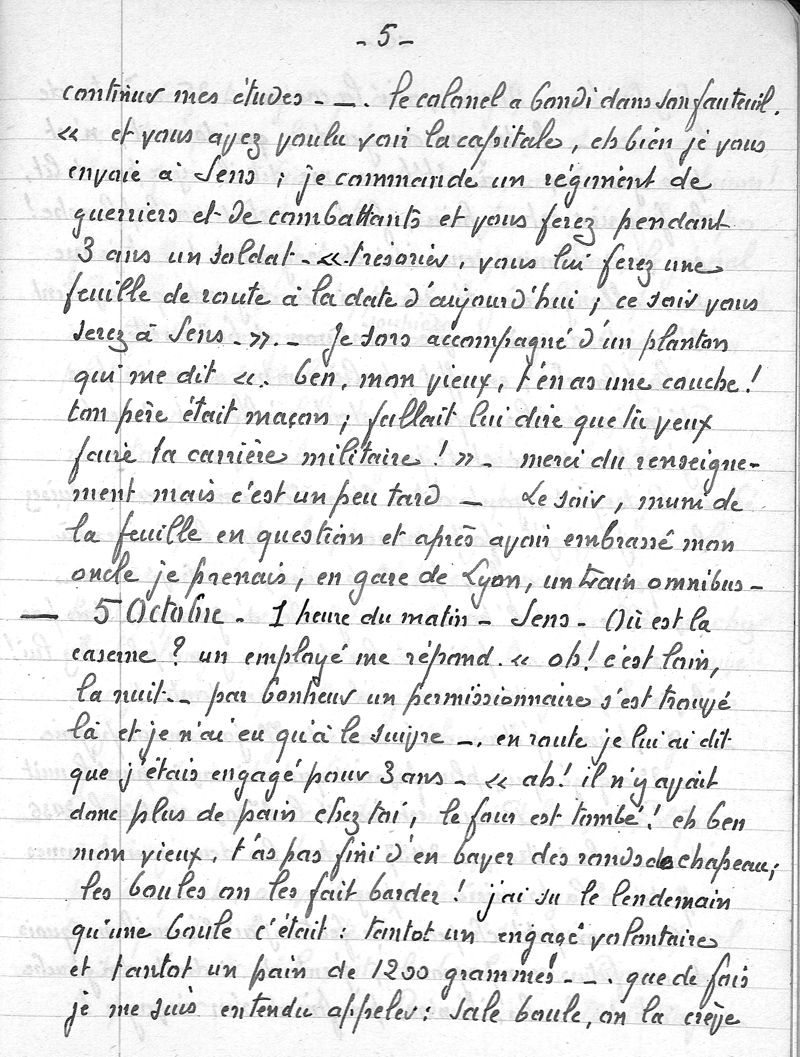 - 5 -
continuer mes études - _ . le colonel a bondi dans son fauteuil.
« et vous avez voulu voir la capitale, eh bien je vous
envoie à Sens ; je commande un régiment de
guerriers et de combattants et vous ferez pendant
3 ans un soldat - « trésorier, vous lui ferez une
feuille de route à la date d'aujourd'hui ; ce soir vous
serez à Sens - ». - Je sors accompagné d'un planton
qui me dit «. ben, mon vieux, t'en as une couche !
ton père était maçon ; fallait lui dire que tu veux
faire la carrière militaire ! » - merci du renseigne-
ment mais c'est un peu tard _ Le soir, muni de
la feuille en question et après avoir embrassé mon
oncle je prenais, en gare de Lyon, un train omnibus -
_ 5 Octobre - 1 heure du matin - Sens - Où est la
caserne ? un employé me répond. « oh ! c'est loin,
la nuit - - par bonheur un permissionnaire s'est trouvé
là et je n'ai eu qu'à le suivre - . en route je lui ai dit
que j'étais engagé pour 3 ans - « ah ! il n'y avait
donc plus de pain chez toi, le four est tombé ! eh ben
mon vieux, t'as pas fini d'en baver des ronds de chapeau ;
les boules on les fait barder ! j'ai su le lendemain
qu'une boule c'était : tantot un engagé volontaire
et tantot un pain de 1200 grammes - - . que de fois
je me suis entendu appeler : sale boule, on la crève